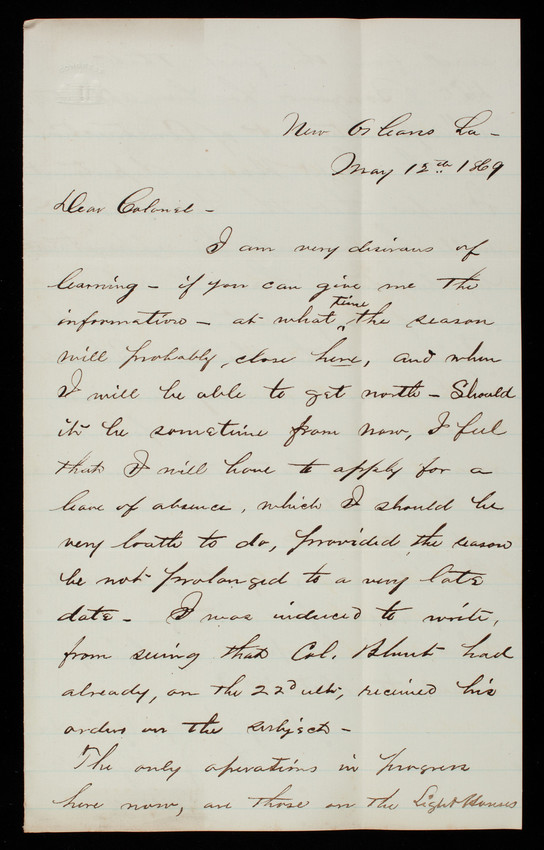 New Orleans La -
May 12th 1869
Dear Colonel -
I am very desirous of
learning - if you can give me the
information - at what time the season
will probably close here, and when
I will be able to get north - Should
it be sometime from now, I feel
that I will have to apply for a
leave of absence, which I should be
very loath to do, provided the season
be not prolonged to a very late
date - I was induced to write,
from seeing that Col. Blunt had
already, on the 22d ult, received his
orders on the subject -
The only operations in progress
here now, are those on the Light Houses